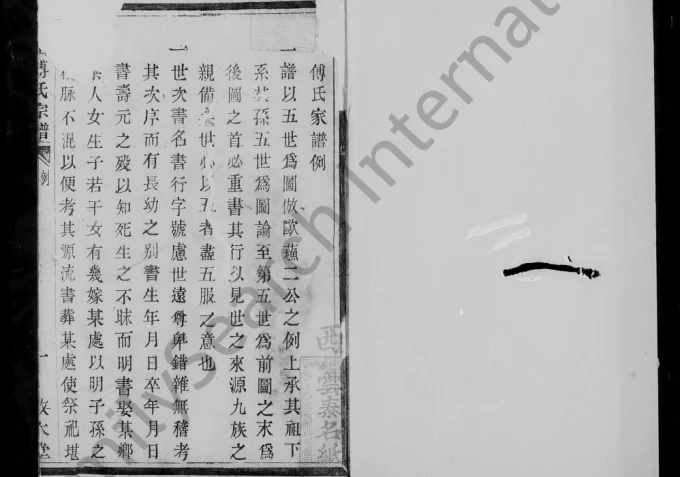 傅氏家譜例
一譜以五世為圖倣歐蘓二公之例上承其祖下
系其孫五世為圖論至第五世為前圖之末為
後圖之首必重書其行以見世之來源九族之
親備 世 以五者盡五服之意也
一世次書名書行字號慮世遠尊卑錯雜無稽考
其次序而有長幼之别書生年月日卒年月日
書壽元之殁以知死生之不昧而明書娶某鄉
人女生子若干女有幾嫁某處以明子孫之
脉不混以便考其源流書葬某處使祭祀堪
傅氏宗譜
例
一
敦大堂
西
雲泰名紙
FamilySearch International